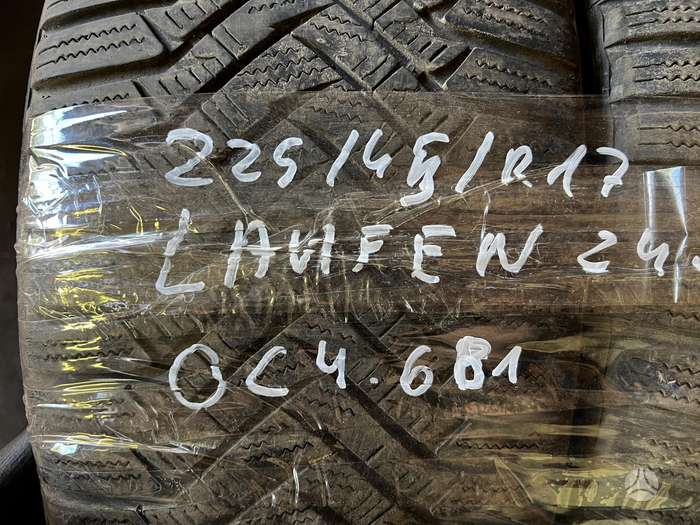 225/45/R17
LAUFEN 24.
OC4.6B1